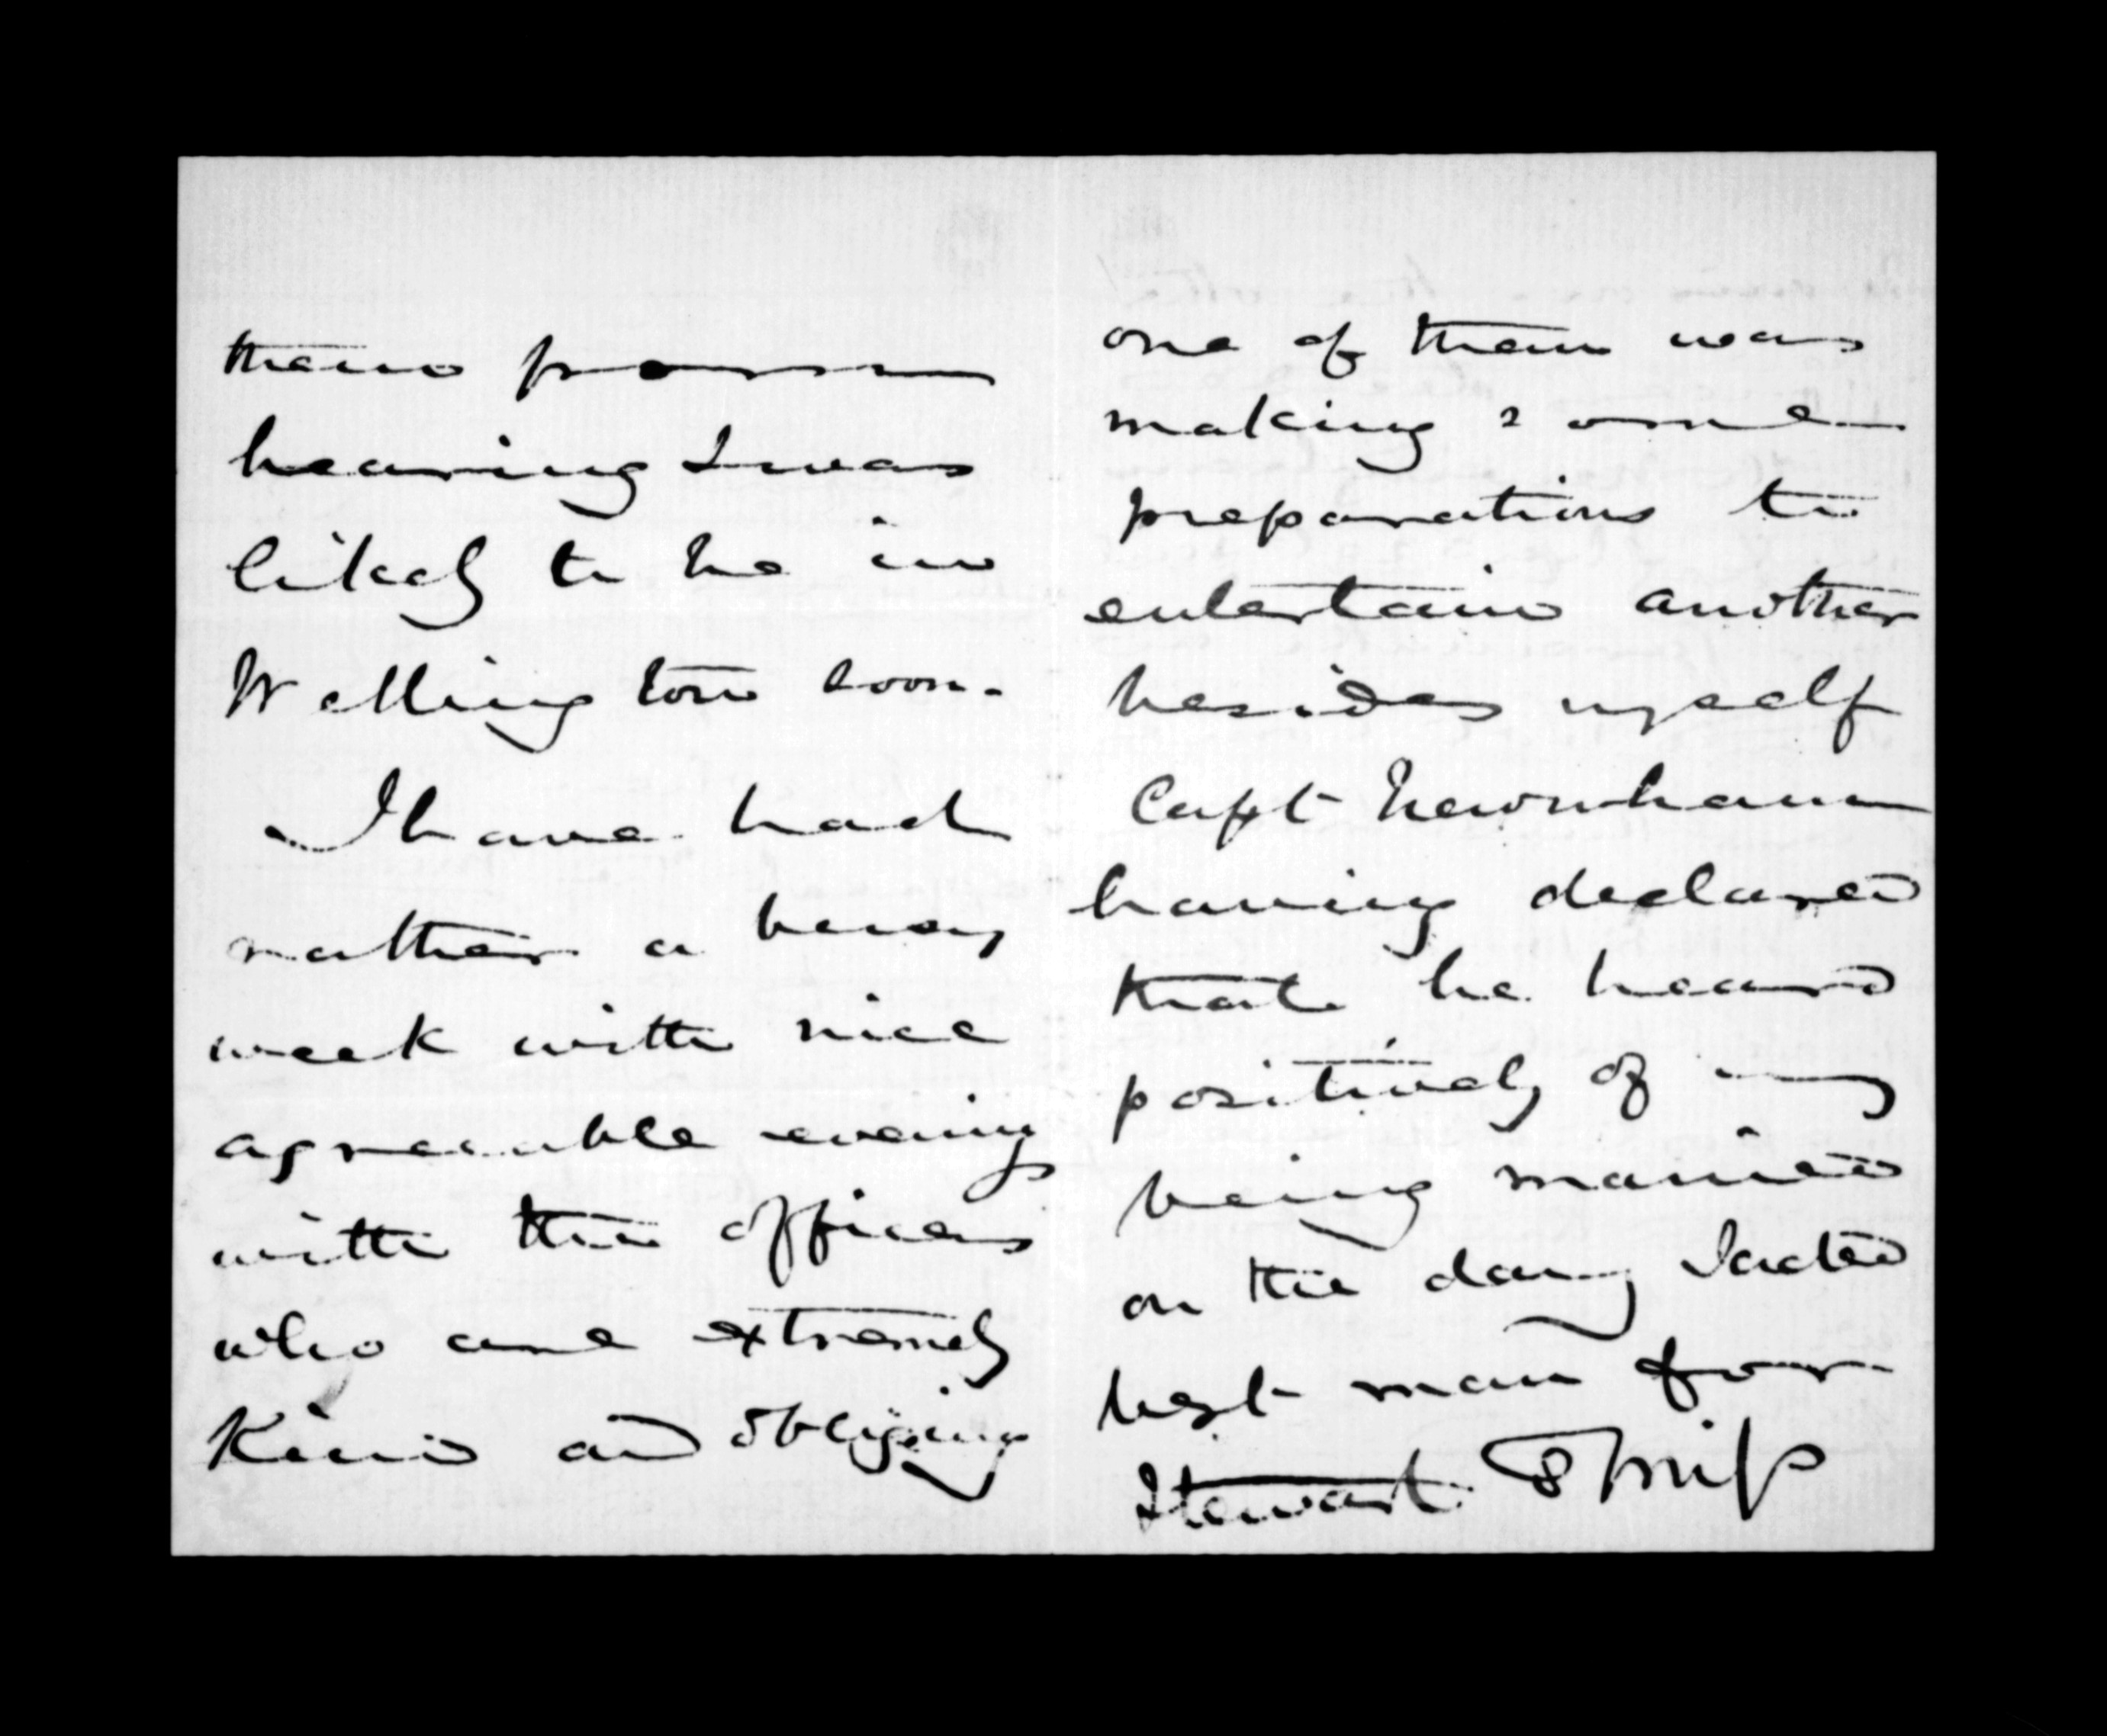 them from
hearing I was
likely to be in
Wellington soon.
I have had
rather a heavy
week with nice
agreeable evenings
with the officers
who are extremely
kind and obliging
one of them was
making some
preparations to
entertain another
besides myself
Capt Newnham
having declared
that he heard
positively of my
being married
on the day I acted
best man for
Stewart & Miss